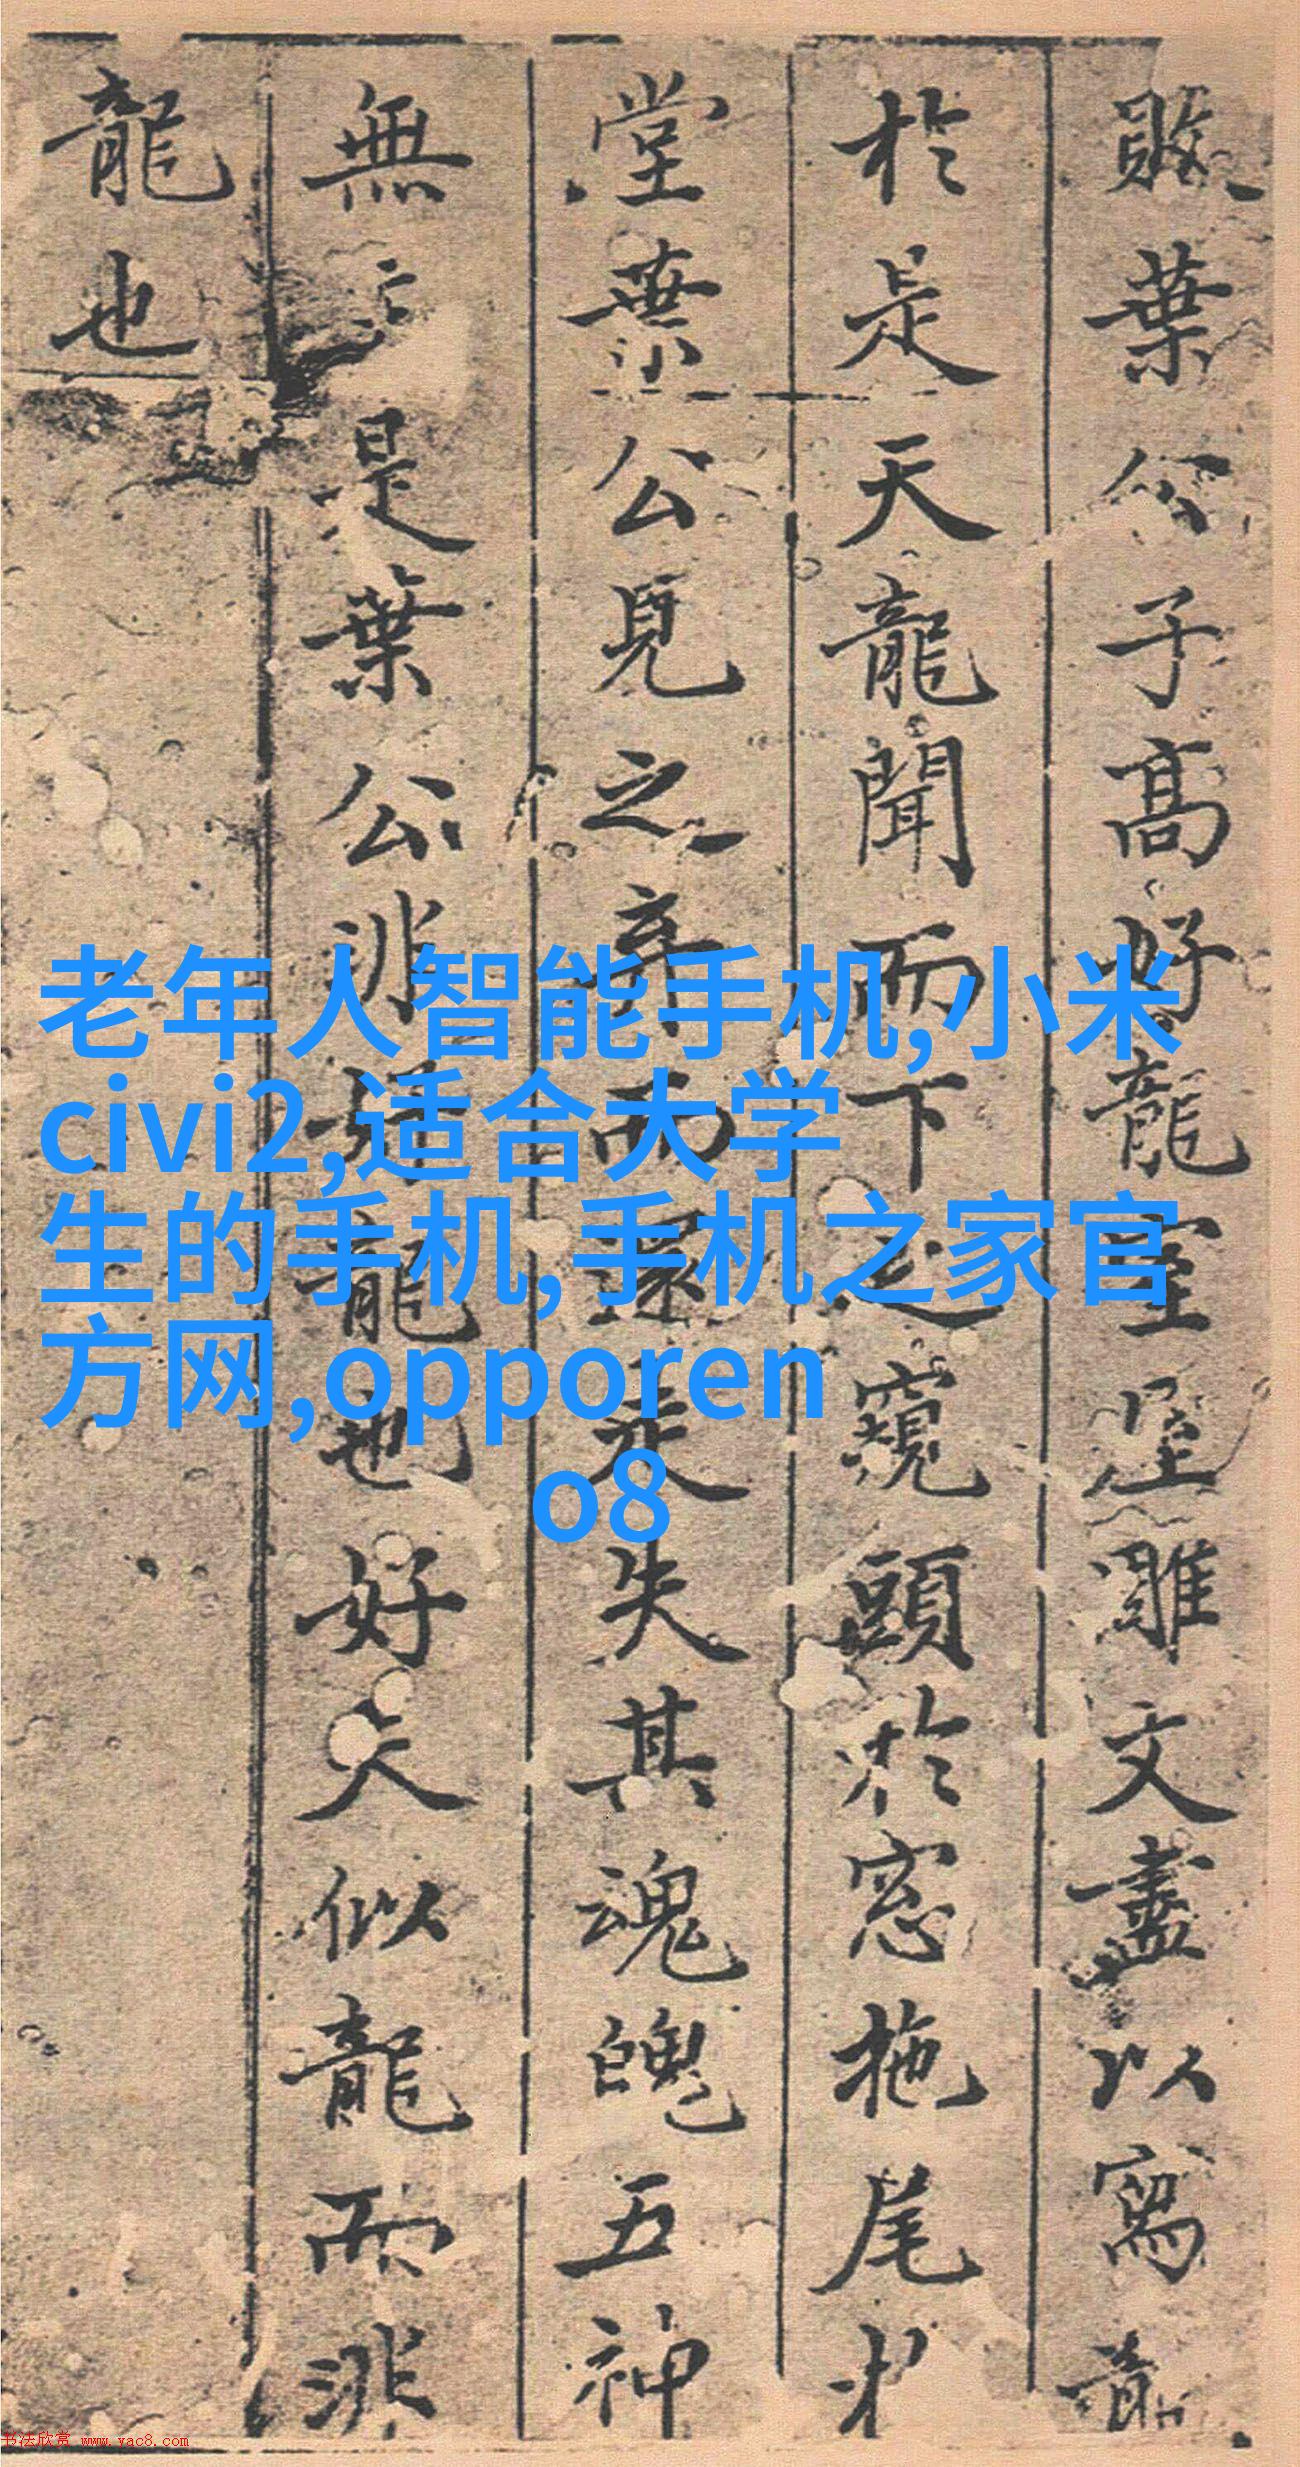 葉公子髙好龍室屋雕文盡以寫龍
於是天龍聞而下之窺頭於窓拖尾
堂葉公見之弃而還走失其魂魄五神
無是葉公非好龍也好夫似龍而非
龍也
老年人智能手机,小米
civi2,适合大学
生的手机,手机之家官
方网,opporen
o8
书法欣赏 www.yac8.com